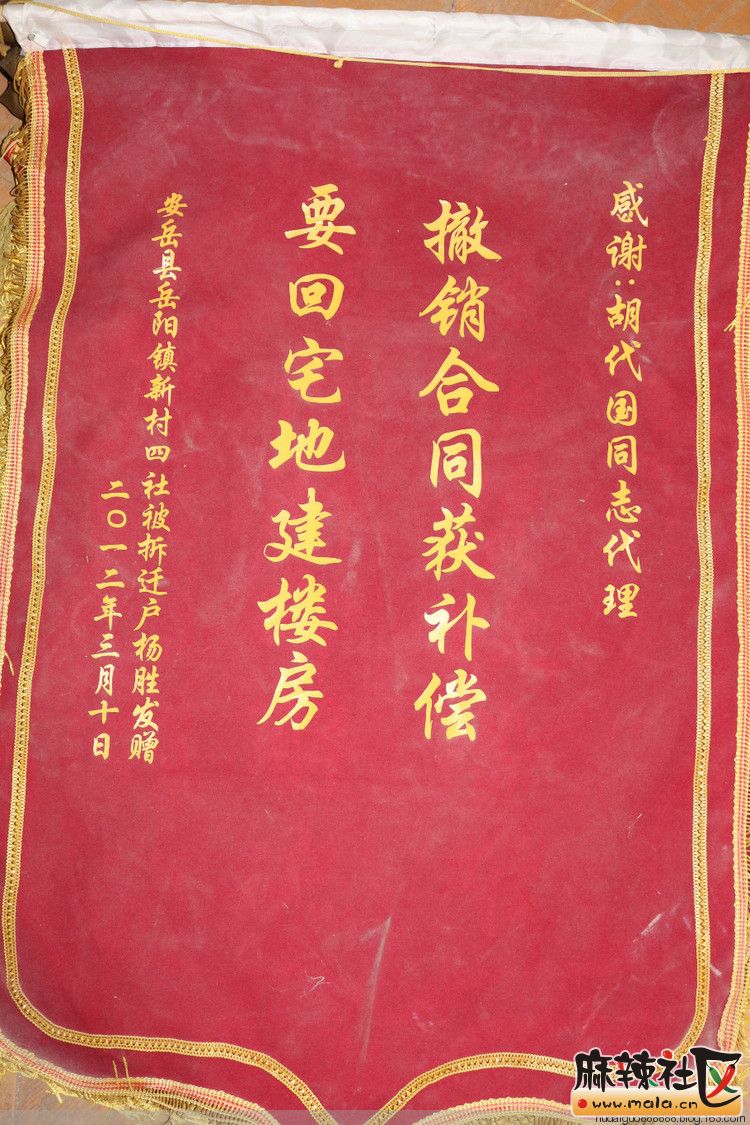 感谢:胡代国同志代理
撤销合同获补偿
要回宅地建楼房
安岳县岳阳镇新村四社被拆迁户杨胜发赠
二〇一二年三月十日
麻辣社区
www.mala.cn
hudaiguo666666.blog.163.com